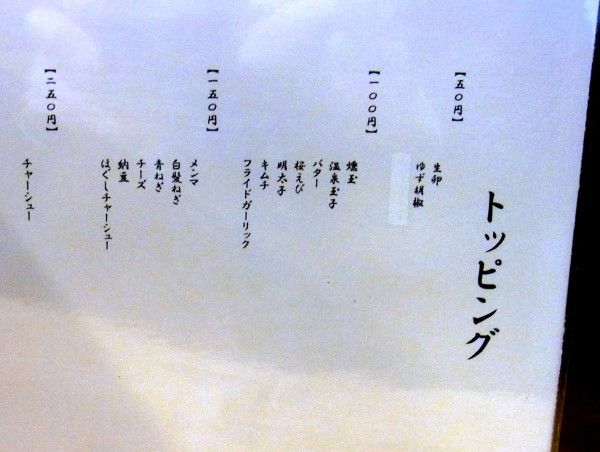 トッピング
【五〇円】
生卵
ゆず胡椒
【一〇〇円】
燻玉
温泉玉子
バター
桜えび
明太子
キムチ
フライドガーリック
【一五〇円】
メンマ
白髪ねぎ
青ねぎ
チーズ
納豆
ほぐしチャーシュー
【二五〇円】
チャーシュー